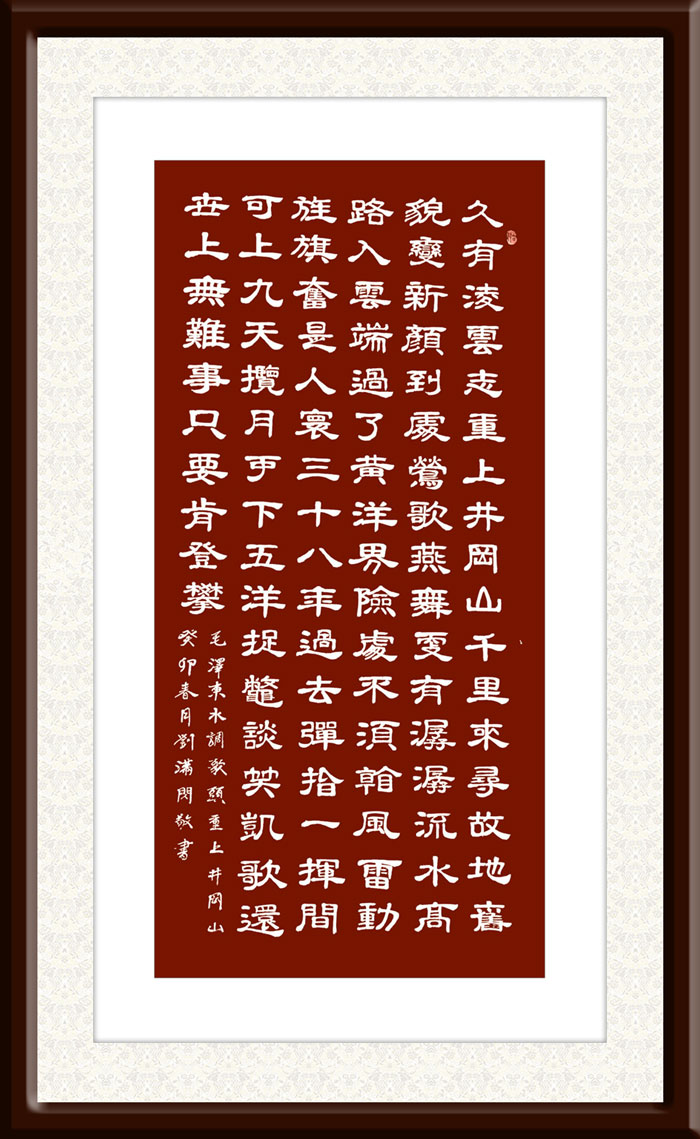 久有淩雲志重上井岡山千里來尋故地舊
貌變新顏到處鶯歌燕舞更有潺潺流水髙
路入雲端過了黄洋界險處不須看風雷動
旌旗奮是人寰三十八年過去彈指一揮間
可上九天攬月可下五洋捉鼈談笑凱歌還
世上無難事只要肯登攀
毛澤東水調歌頭重上井岡山
癸卯春月劉滿閃敬書